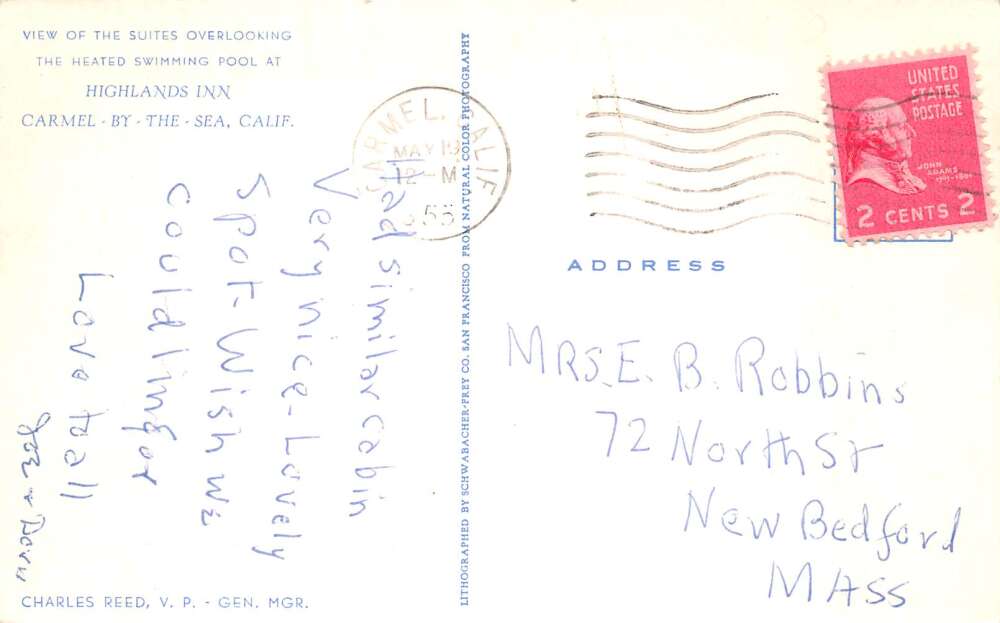 VIEW OF THE SUITES OVERLOOKING
THE HEATED SWIMMING POOL AT
HIGHLANDS INN
CARMEL - BY - THE - SEA, CALIF.
Had similar cabin
Very nice - Lovely
Spot - Wish we
could
Love to all
CHARLES REED, V. P. - GEN. MGR.
LITHOGRAPHED BY SCHWABACHER-FREY CO. SAN FRANCISCO FROM NATURAL COLOR PHOTOGRAPHY
CARMEL. CALIF
MAY 19
12 - M
55
UNITED
STATES
POSTAGE
JOHN
ADAMS
2 CENTS 2
ADDRESS
MRS. E. B. Robbins
72 North St
New Bedford
MASS